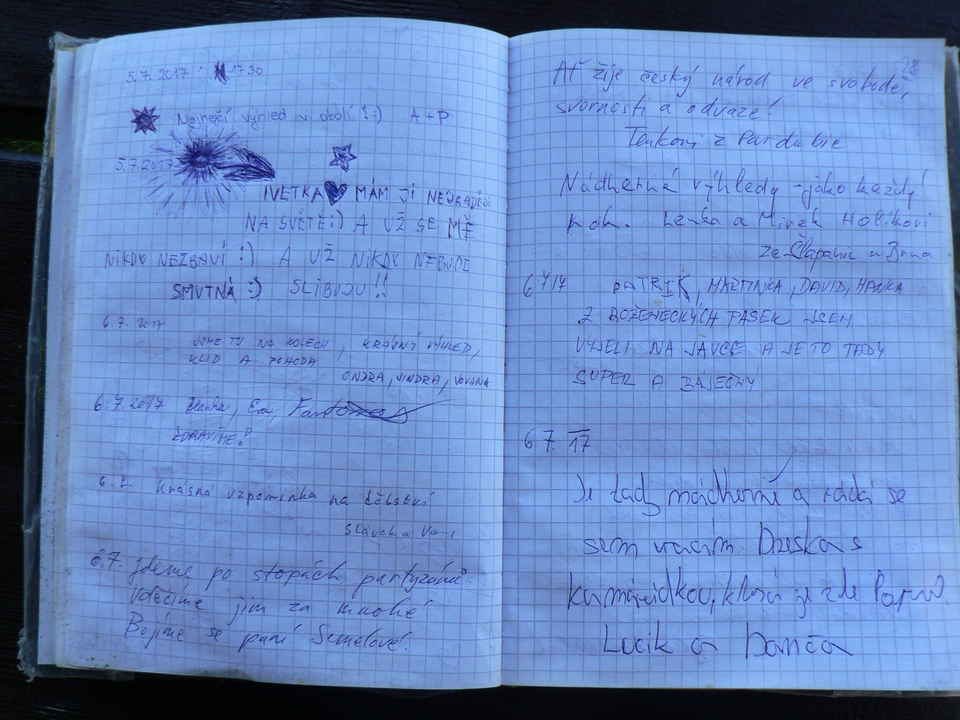 5.7.2017 : 17 30
Nejhezčí výhled v okolí! :) A+P
5.7.2017
IVETKA MÁM JÍ NEJRADĚJI
NA SVĚTĚ :) A UŽ SE MĚ
NIKDY NEZBAVÍ :) A UŽ NIKDY NEBUDE
SMUTNÁ :) SLIBUJU!!
6.7. 2017
JSME TU NA KOLECH, KRÁSNÝ VÝHLED,
KLID A POHODA
ONDRA, JINDRA,
6.7.2017 Blanka, Eva, Fantomas
ZDRAVÍME!
6.7. Krásná vzpomínka na dětství
Slávek a
6.7. Jdeme po stopách partyzánů.
Vděčíme jim za mnohé
Bojíme se paní Semelové!
28
Ať žije český národ ve svobodě,
svornosti a odvaze!
z Pardubic
Nádherné výhledy - jako každý
rok. Lenka a Mirek Holíkovi
ze Šlapanic u Brna
6/7/17 PATRIK, MARTINKA, DAVID, HANKA
Z BOŽENECKÝCH PASEK JSEM
VYJELI NA JAVCE A JE TO TADY
SUPER A BÁJEČNÝ
6.7. 17
Je tady nádherně a ráda se
sem vracím. Dneska s
kamarádkou, která je zde poprvé.
Lucik a Danča